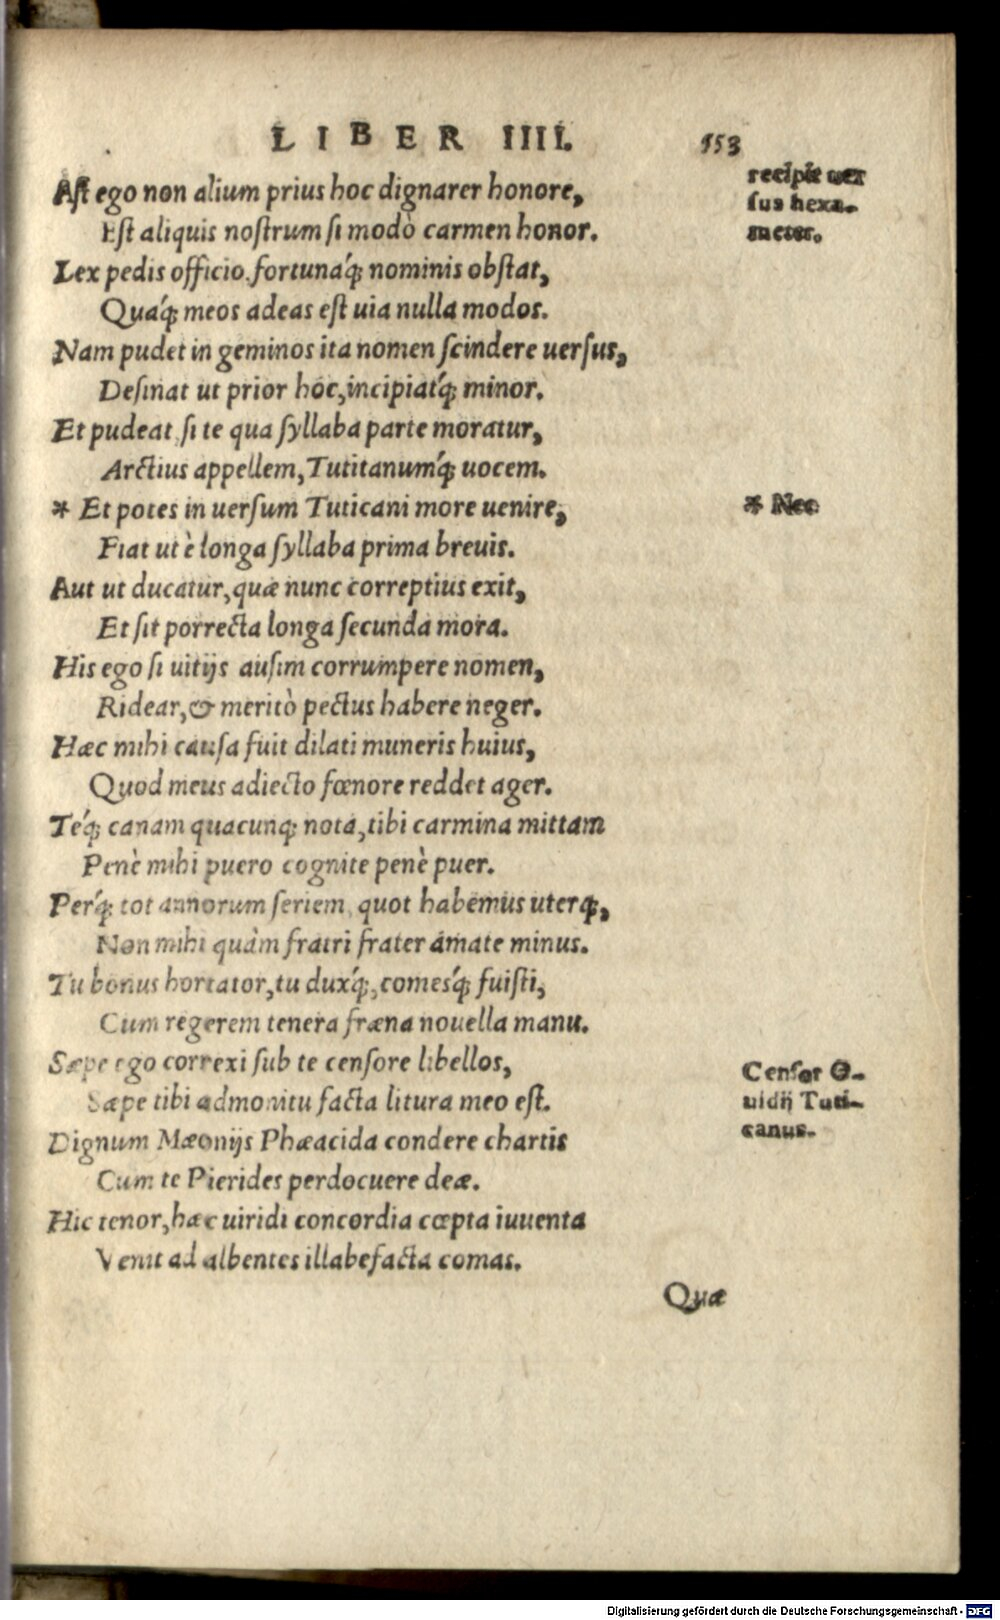 LIBER IIII. 153
Ast ego non alium prius hoc dignarer honore,
Est aliquis nostrum si modò carmen honor.
Lex pedis officio, fortunaq́; nominis obstat,
Quáq́; meos adeas est uia nulla modos.
Nam pudet in geminos ita nomen scindere uersus,
Desinat ut prior hoc, incipiatq́; minor.
Et pudeat, si te qua syllaba parte moratur,
Arctius appellem, Tutitanumq́; uocem.
* Et potes in uersum Tuticani more uenire,
Fiat ut è longa syllaba prima breuis.
Aut ut ducatur, quæ nunc correptius exit,
Et sit porrecta longa secunda mora.
His ego si uitijs ausim corrumpere nomen,
Ridear, & meritò pectus habere neger.
Hæc mihi causa fuit dilati muneris huius,
Quod meus adiecto fœnore reddet ager.
Téq́; canam quacunq; nota, tibi carmina mittam
Penè mihi puero cognite penè puer.
Perq́; tot annorum seriem, quot habemus uterq;,
Non mihi quàm fratri frater amate minus.
Tu bonus hortator, tu duxq́;, comesq́; fuisti,
Cum regerem tenera fræna nouella manu.
Sæpe ego correxi sub te censore libellos,
Sæpe tibi admonitu facta litura meo est.
Dignum Mæonijs Phæacida condere chartis
Cum te Pierides perdocuere deæ.
Hic tenor, hæc uiridi concordia cœpta iuuenta
Venit ad albentes illabefacta comas.
Quæ
recipit uer
sus hexa-
meter.
* Nec
Censor O-
uidij Tuti-
canus.
Digitalisierung gefördert durch die Deutsche Forschungsgemeinschaft - DFG